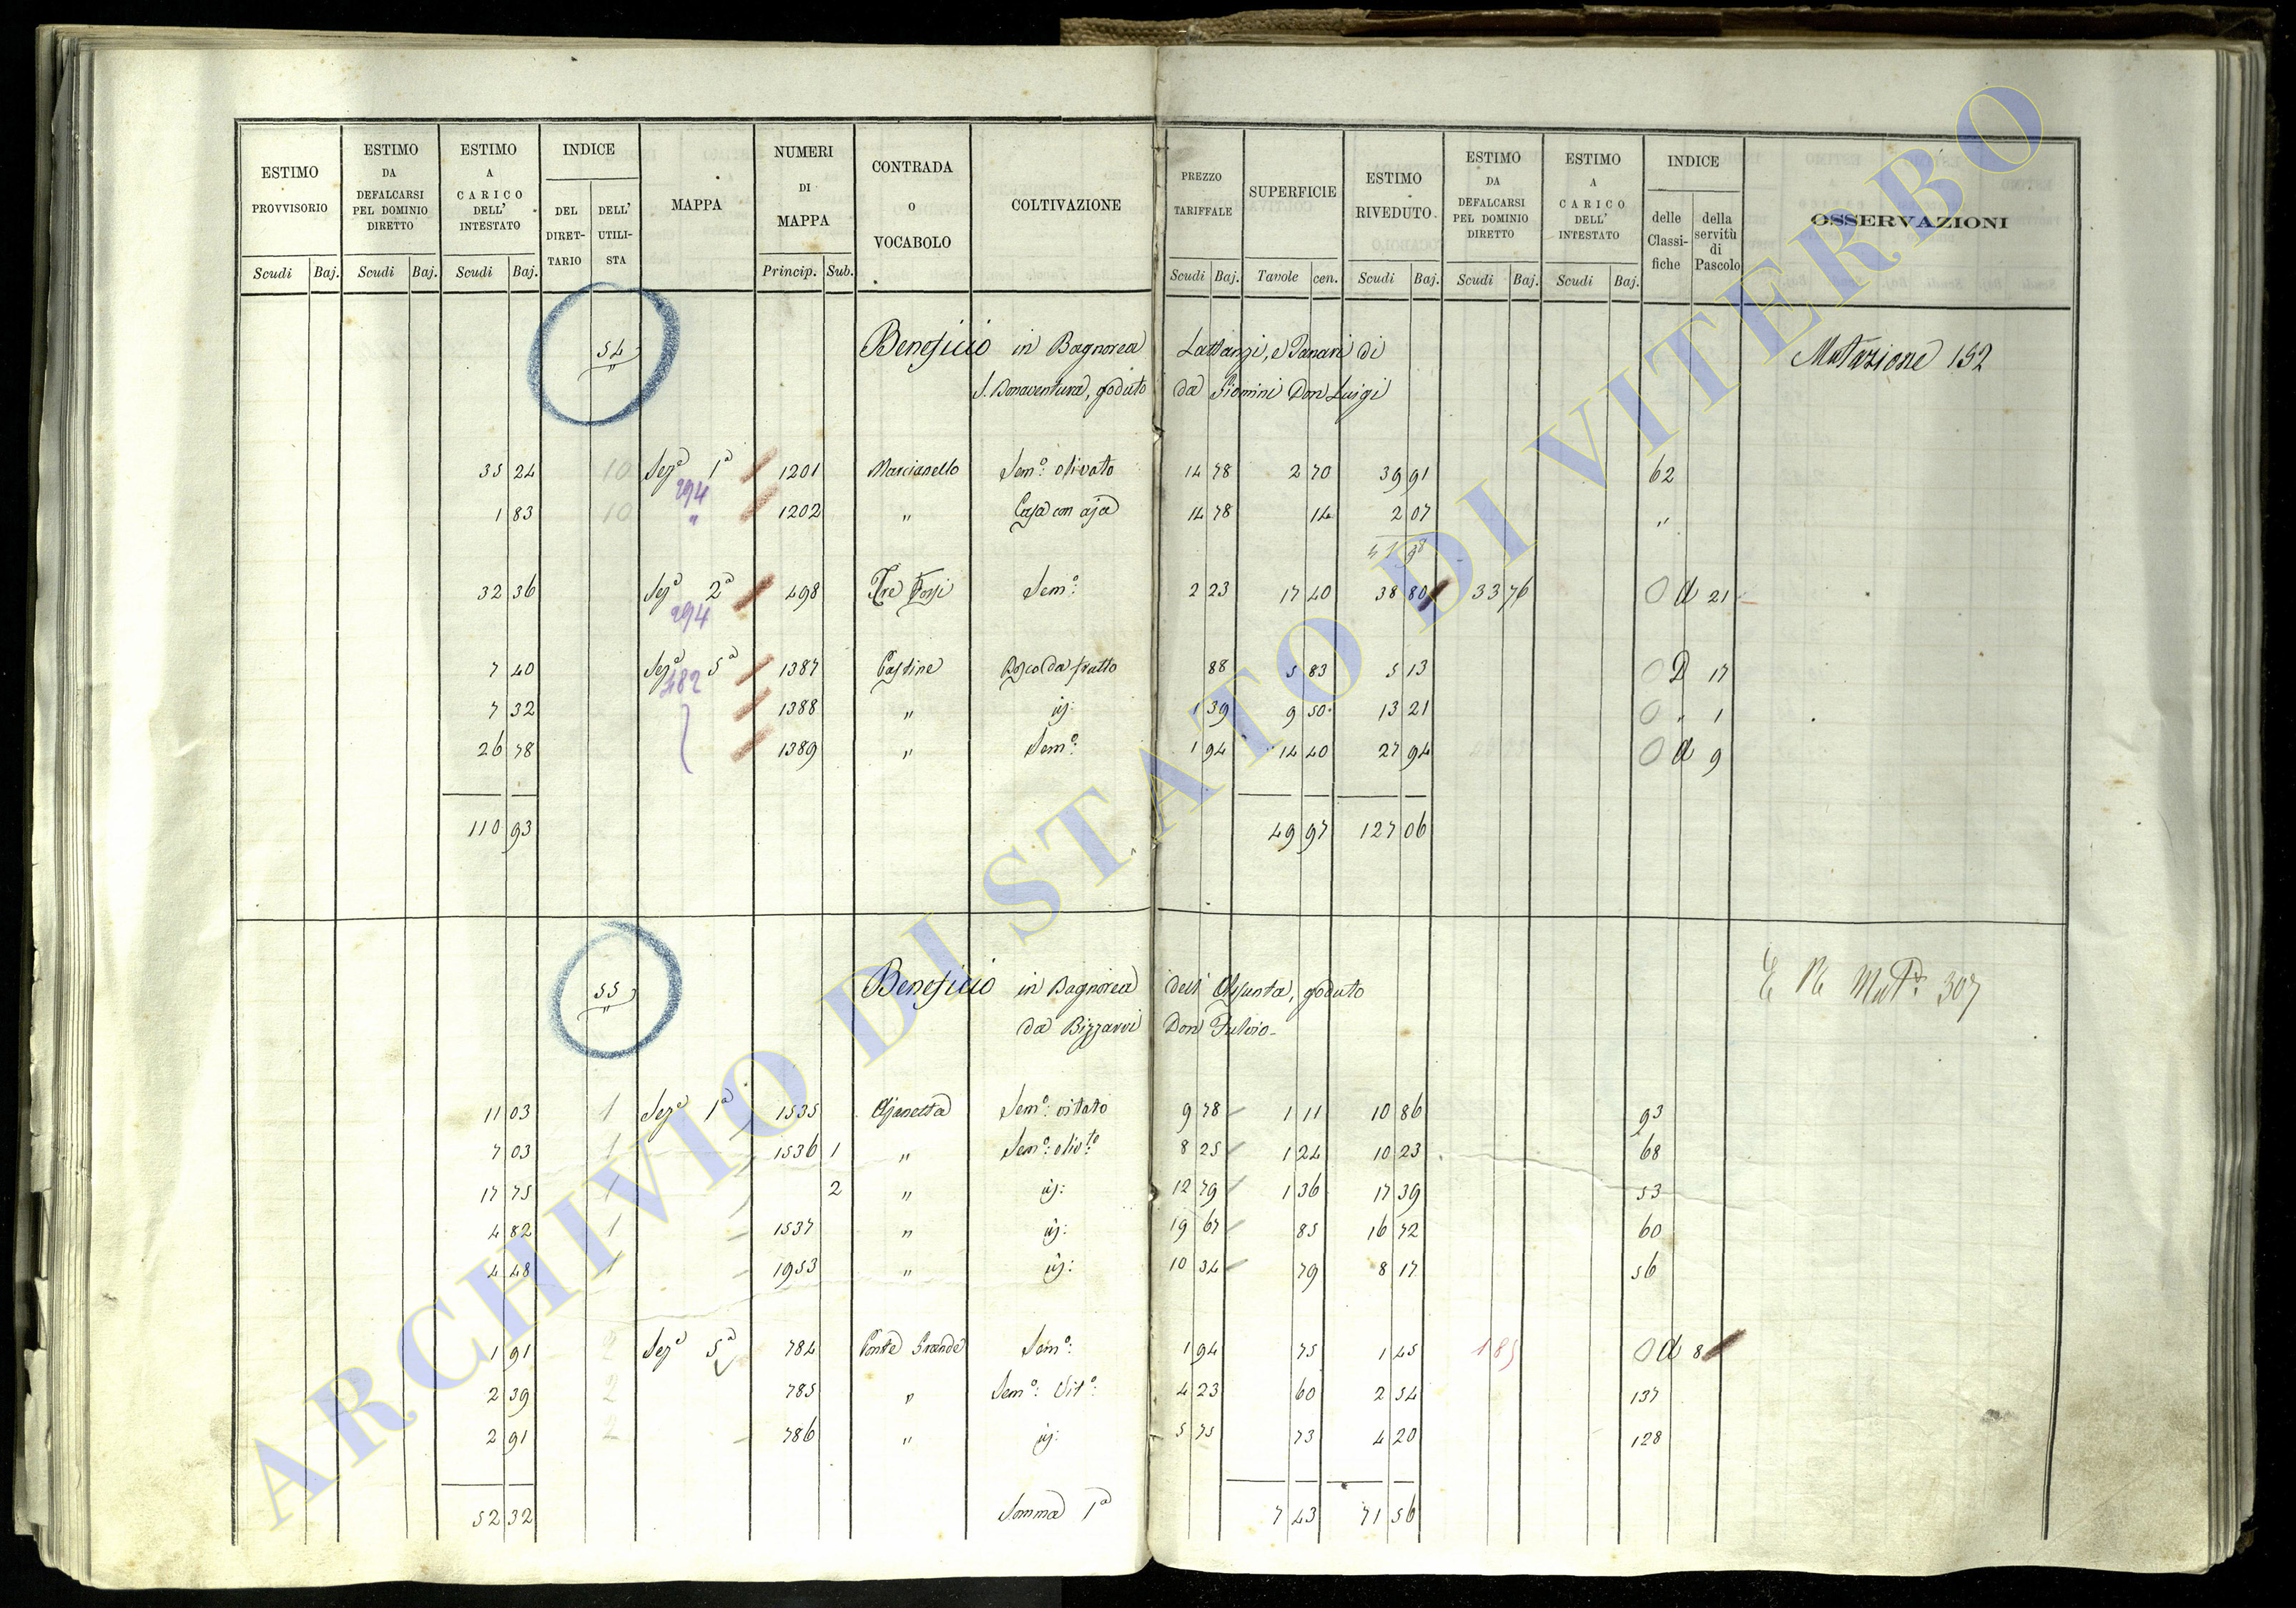 ESTIMO PROVVISORIO | ESTIMO DA DEFALCARSI PEL DOMINIO DIRETTO | ESTIMO A CARICO DELL' INTESTATO | INDICE | MAPPA | NUMERI DI MAPPA | CONTRADA O VOCABOLO | COLTIVAZIONE | PREZZO TARIFFALE | SUPERFICIE | ESTIMO RIVEDUTO | ESTIMO DA DEFALCARSI PEL DOMINIO DIRETTO | ESTIMO A CARICO DELL' INTESTATO | INDICE | OSSERVAZIONI
DEL DIRET-TARIO | DELL' UTILI-STA | delle Classi-fiche | della servitù di Pascolo
Scudi | Baj. | Scudi | Baj. | Scudi | Baj. | Princip. | Sub. | Scudi | Baj. | Tavole | cen. | Scudi | Baj. | Scudi | Baj. | Scudi | Baj.
54 Beneficio in Bagnorea Lattanzi, e Panari di Mutazione 152
S. Bonaventura, goduto da Fiomini Don Luigi
35 24 10 Sezᵉ 1ª 1201 Marcianello Semº: olivato 14 78 2 70 39 91 62
294
1 83 10 " 1202 " Casa con aja 14 78 14 2 07 "
41 98
32 36 Sezᵉ 2ª 498 Tre Fossi Semº: 2 23 17 40 38 80 33 76 0 d 21
294
7 40 Sezᵉ 5ª 1387 Bosco da frutto 88 5 83 5 13 0 D 17
482
7 32 1388 " id: 1 39 9 50 13 21 0 " 1
26 78 1389 " Semº: 1 94 14 40 27 94 0 d 9
110 93 49 97 127 06
55 Beneficio in Bagnorea dell' Assunta, goduto
Mutª: 307
da Bizzarri Don Fulvio
11 03 1 Sezᵉ 1ª 1535 Semº: vitato 9 78 1 11 10 86 93
7 03 1 1536 1 " Semº: olivto: 8 25 1 24 10 23 68
17 75 1 2 " id: 12 79 1 36 17 39 53
4 82 1 1537 " id: 19 67 85 16 72 60
4 48 1 1953 " id: 10 34 79 8 17 56
1 91 2 Sezᵉ 5ª 784 Ponte Grande Semº: 1 94 75 1 45 1 85 0 d 8
2 39 2 785 " Semº: Vitº: 4 23 60 2 54 137
2 91 2 786 " id: 5 75 73 4 20 128
52 32 Somma 1ª 7 43 71 56
ARCHIVIO DI STATO DI VITERBO